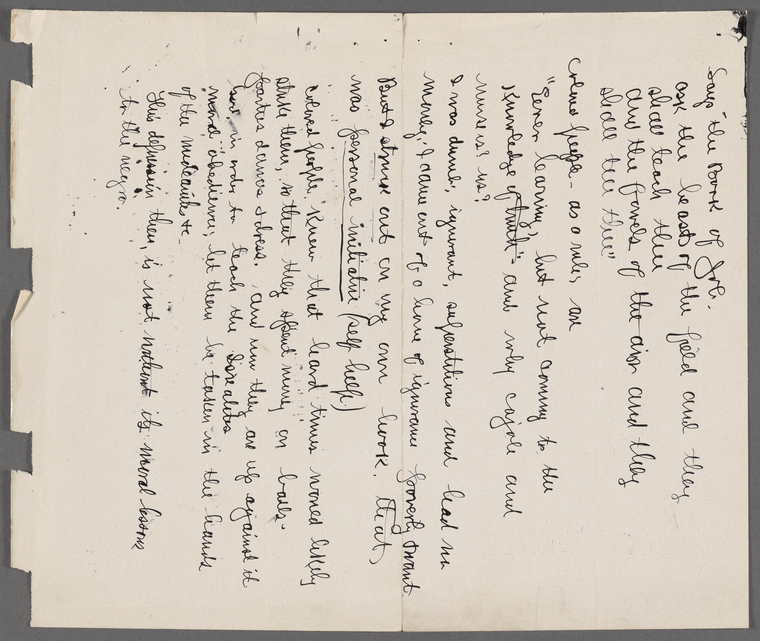 Says "the Book of Job.
ask the beasts of the field and they
shall teach thee
and the fowels of the air and they
shall tell thee"
Colored people - as a rule, are
"Ever learning, but not coming to the
Knowledge of truth" and why cajole and
us?
I was dumb, ignorant, superstitious and had no
money, I came out of a home of ignorance poverty & want
But I struck out on my own hook. that,
was personal initiative (self help)
Colored people knew that hard times would likely
strike them, so that they spent money on balls.
parties dances & dress. and now they are up against it
in order to teach the
moral obedience, let them be taken in the hands
of the &c
This depression then, is not without its moral lessons
to the negro.